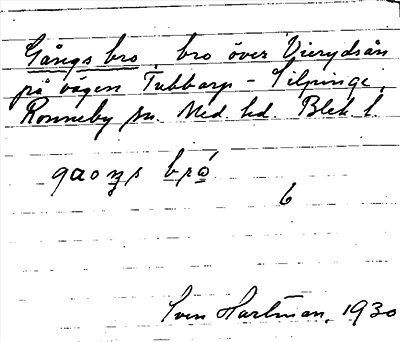 Gångs bro, bro över Vierydsån
på vägen Tubbarp - Silpinge,
Ronneby sn. Med. hd. Blek. l.
gaoŋs bró
6
Sven Hartman, 1930